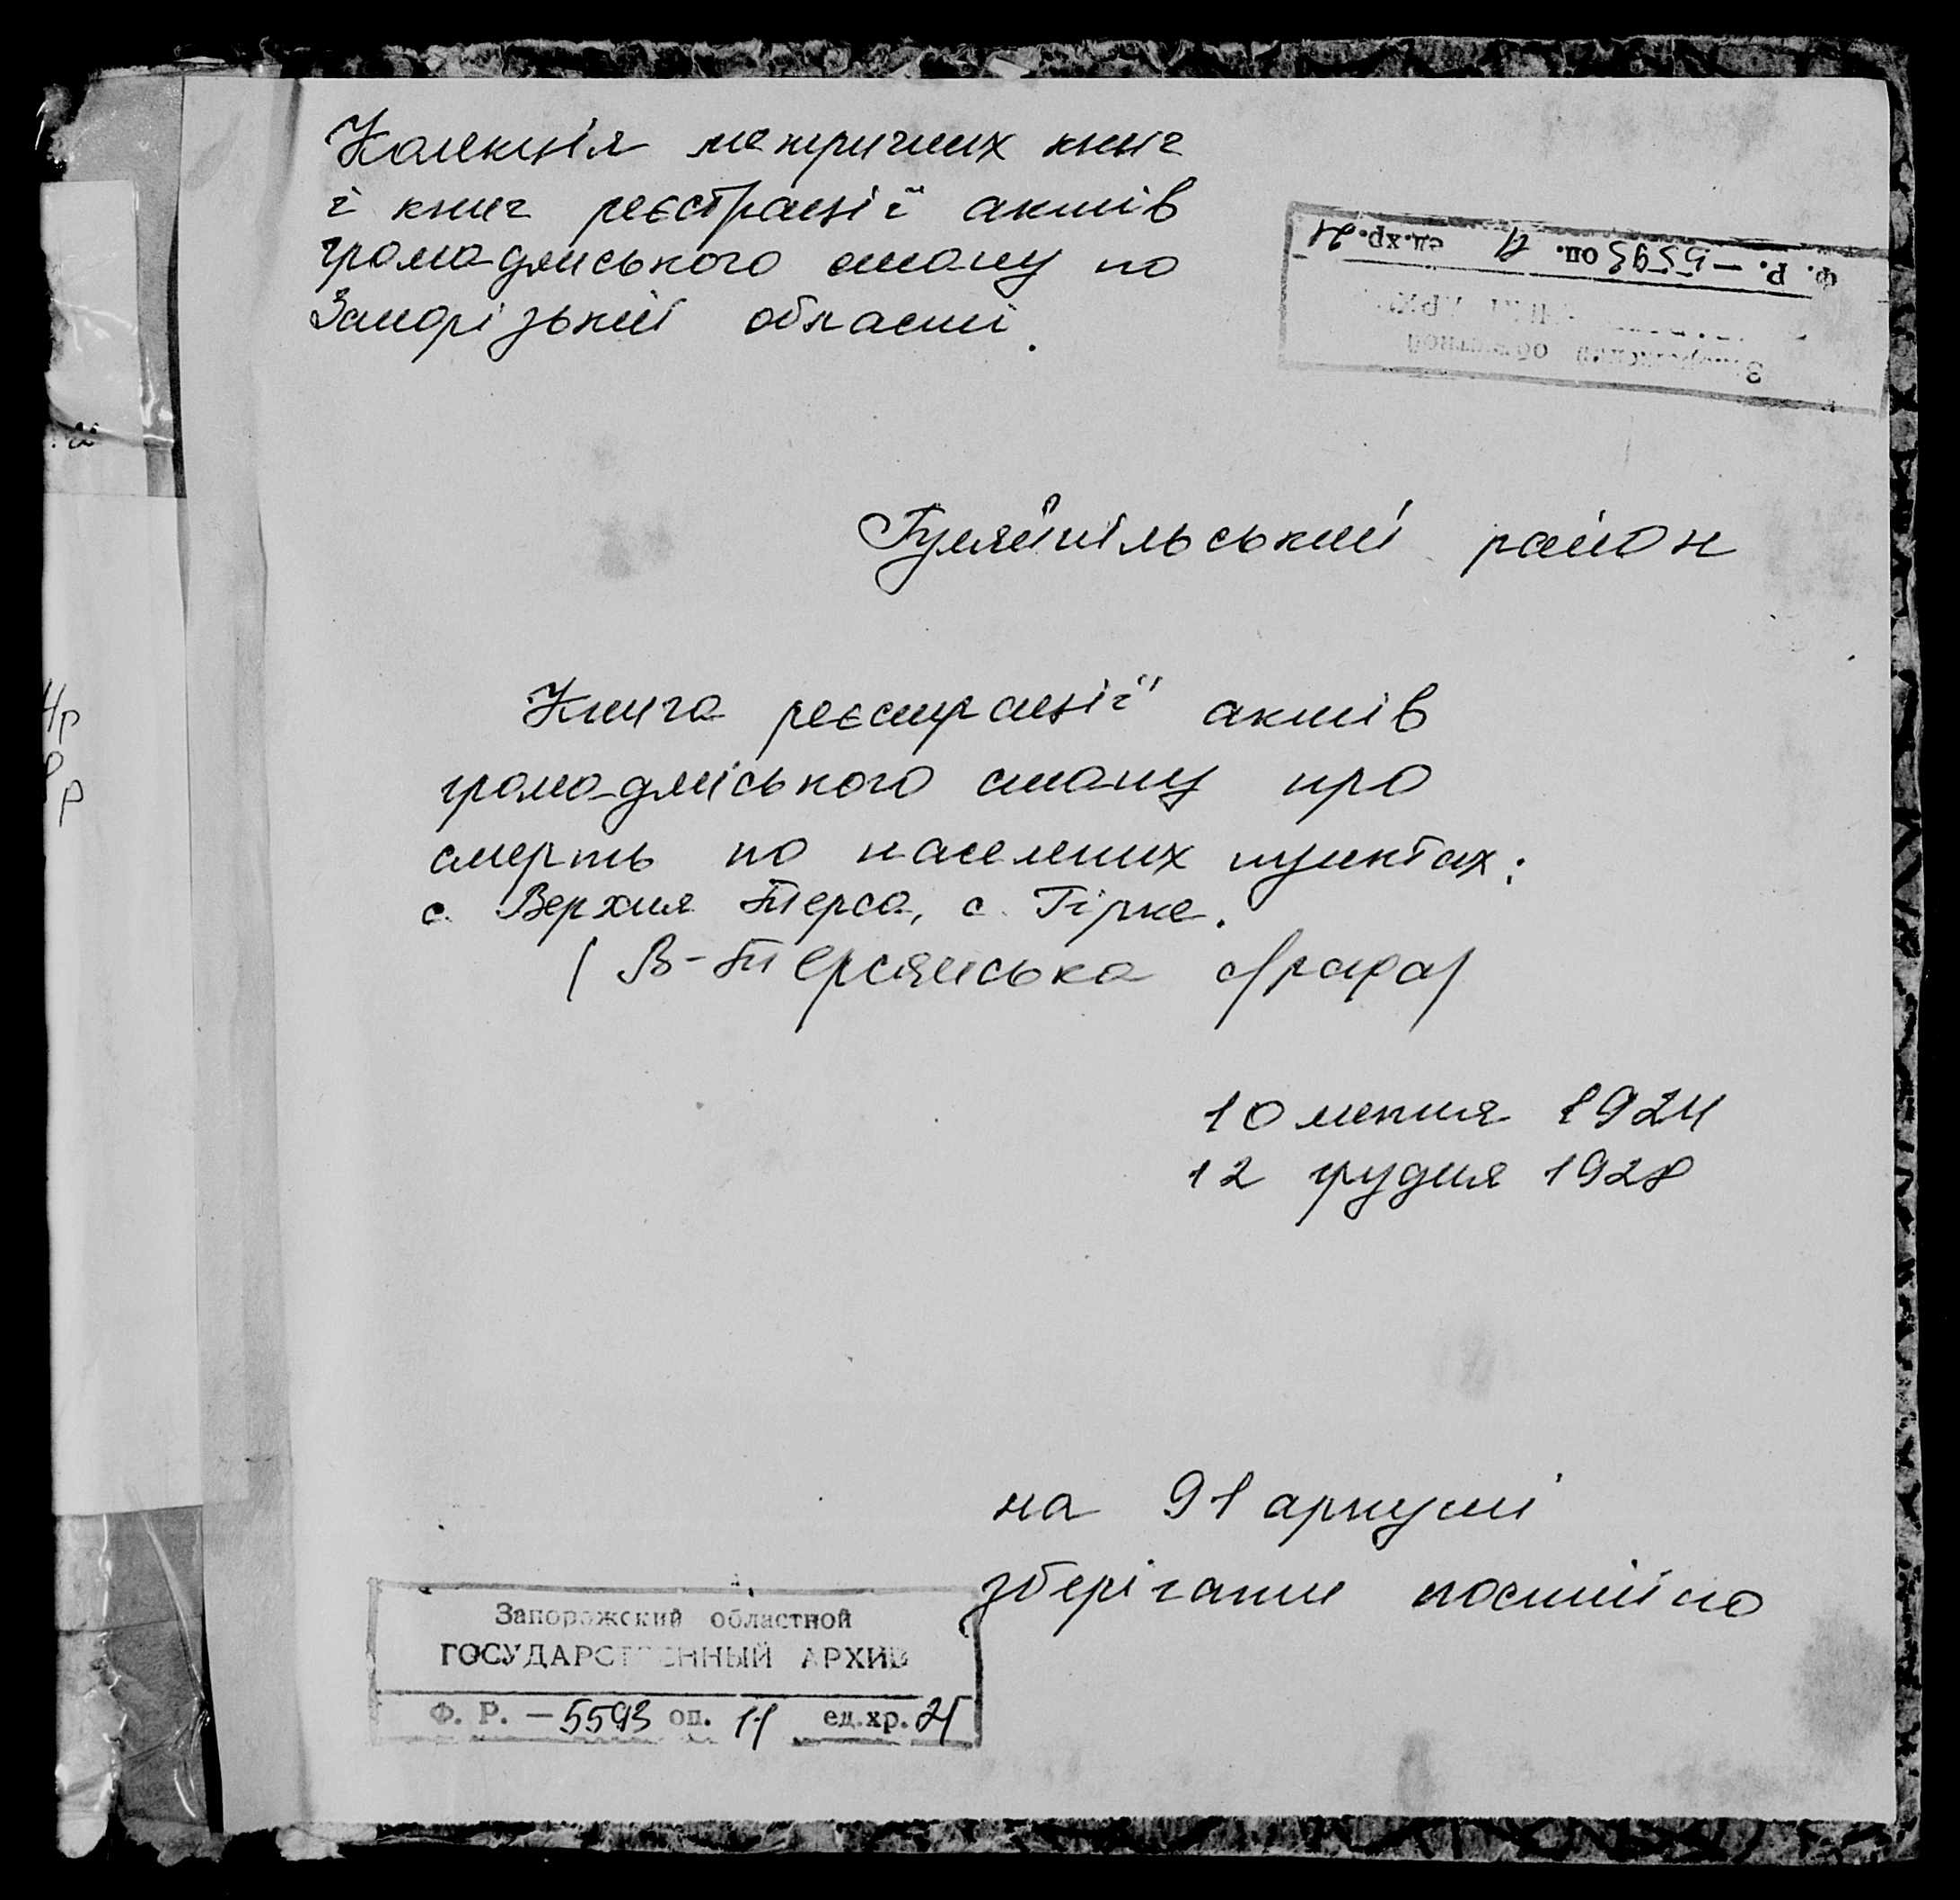 Колекція метричних книг
і книг реєстрації актів
громадянського стану по
Запорізькій області.
Ф. Р. — 5593 оп. 11 ед.хр. 21
Гуляйпільський район
Книга реєстрації актів
громадянського стану про
смерть по населених пунктах:
с. Верхня Терса, с. Гірке.
( В-Терсянська с/рада)
10 липня 1924
12 грудня 1928
на 91 аркуші
зберігати постійно
Запорожский областной
ГОСУДАРСТВЕННЫЙ АРХИВ
Ф. Р. — 5593 оп. 11 ед.хр. 21